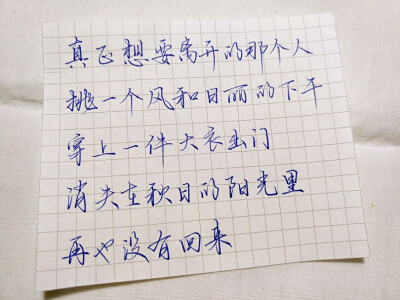 真正想要离开的那个人
挑一个风和日丽的下午
穿上一件大衣出门
消失在秋日的阳光里
再也没有回来